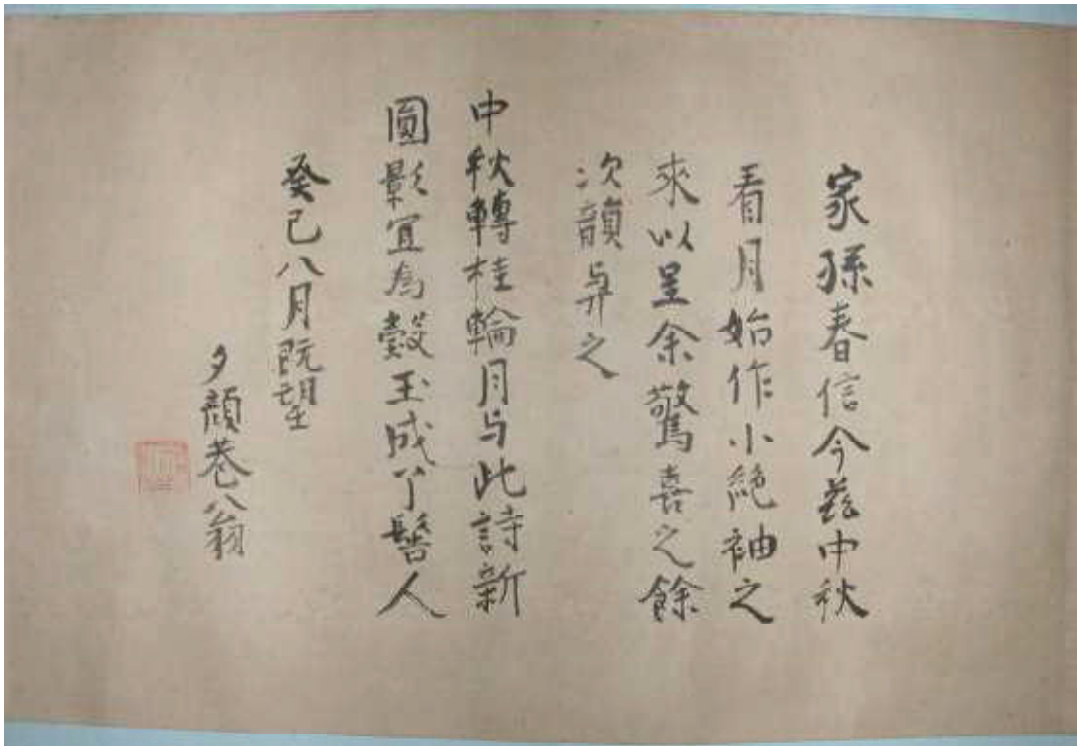 家孫春信今茲中秋
看月始作小絶袖之
來以呈余驚喜之餘
次韻与弄之
中秋轉桂輪月与此詩新
圓影宜為鼓玉成丫髻人
癸巳八月既望
夕顔巷八翁